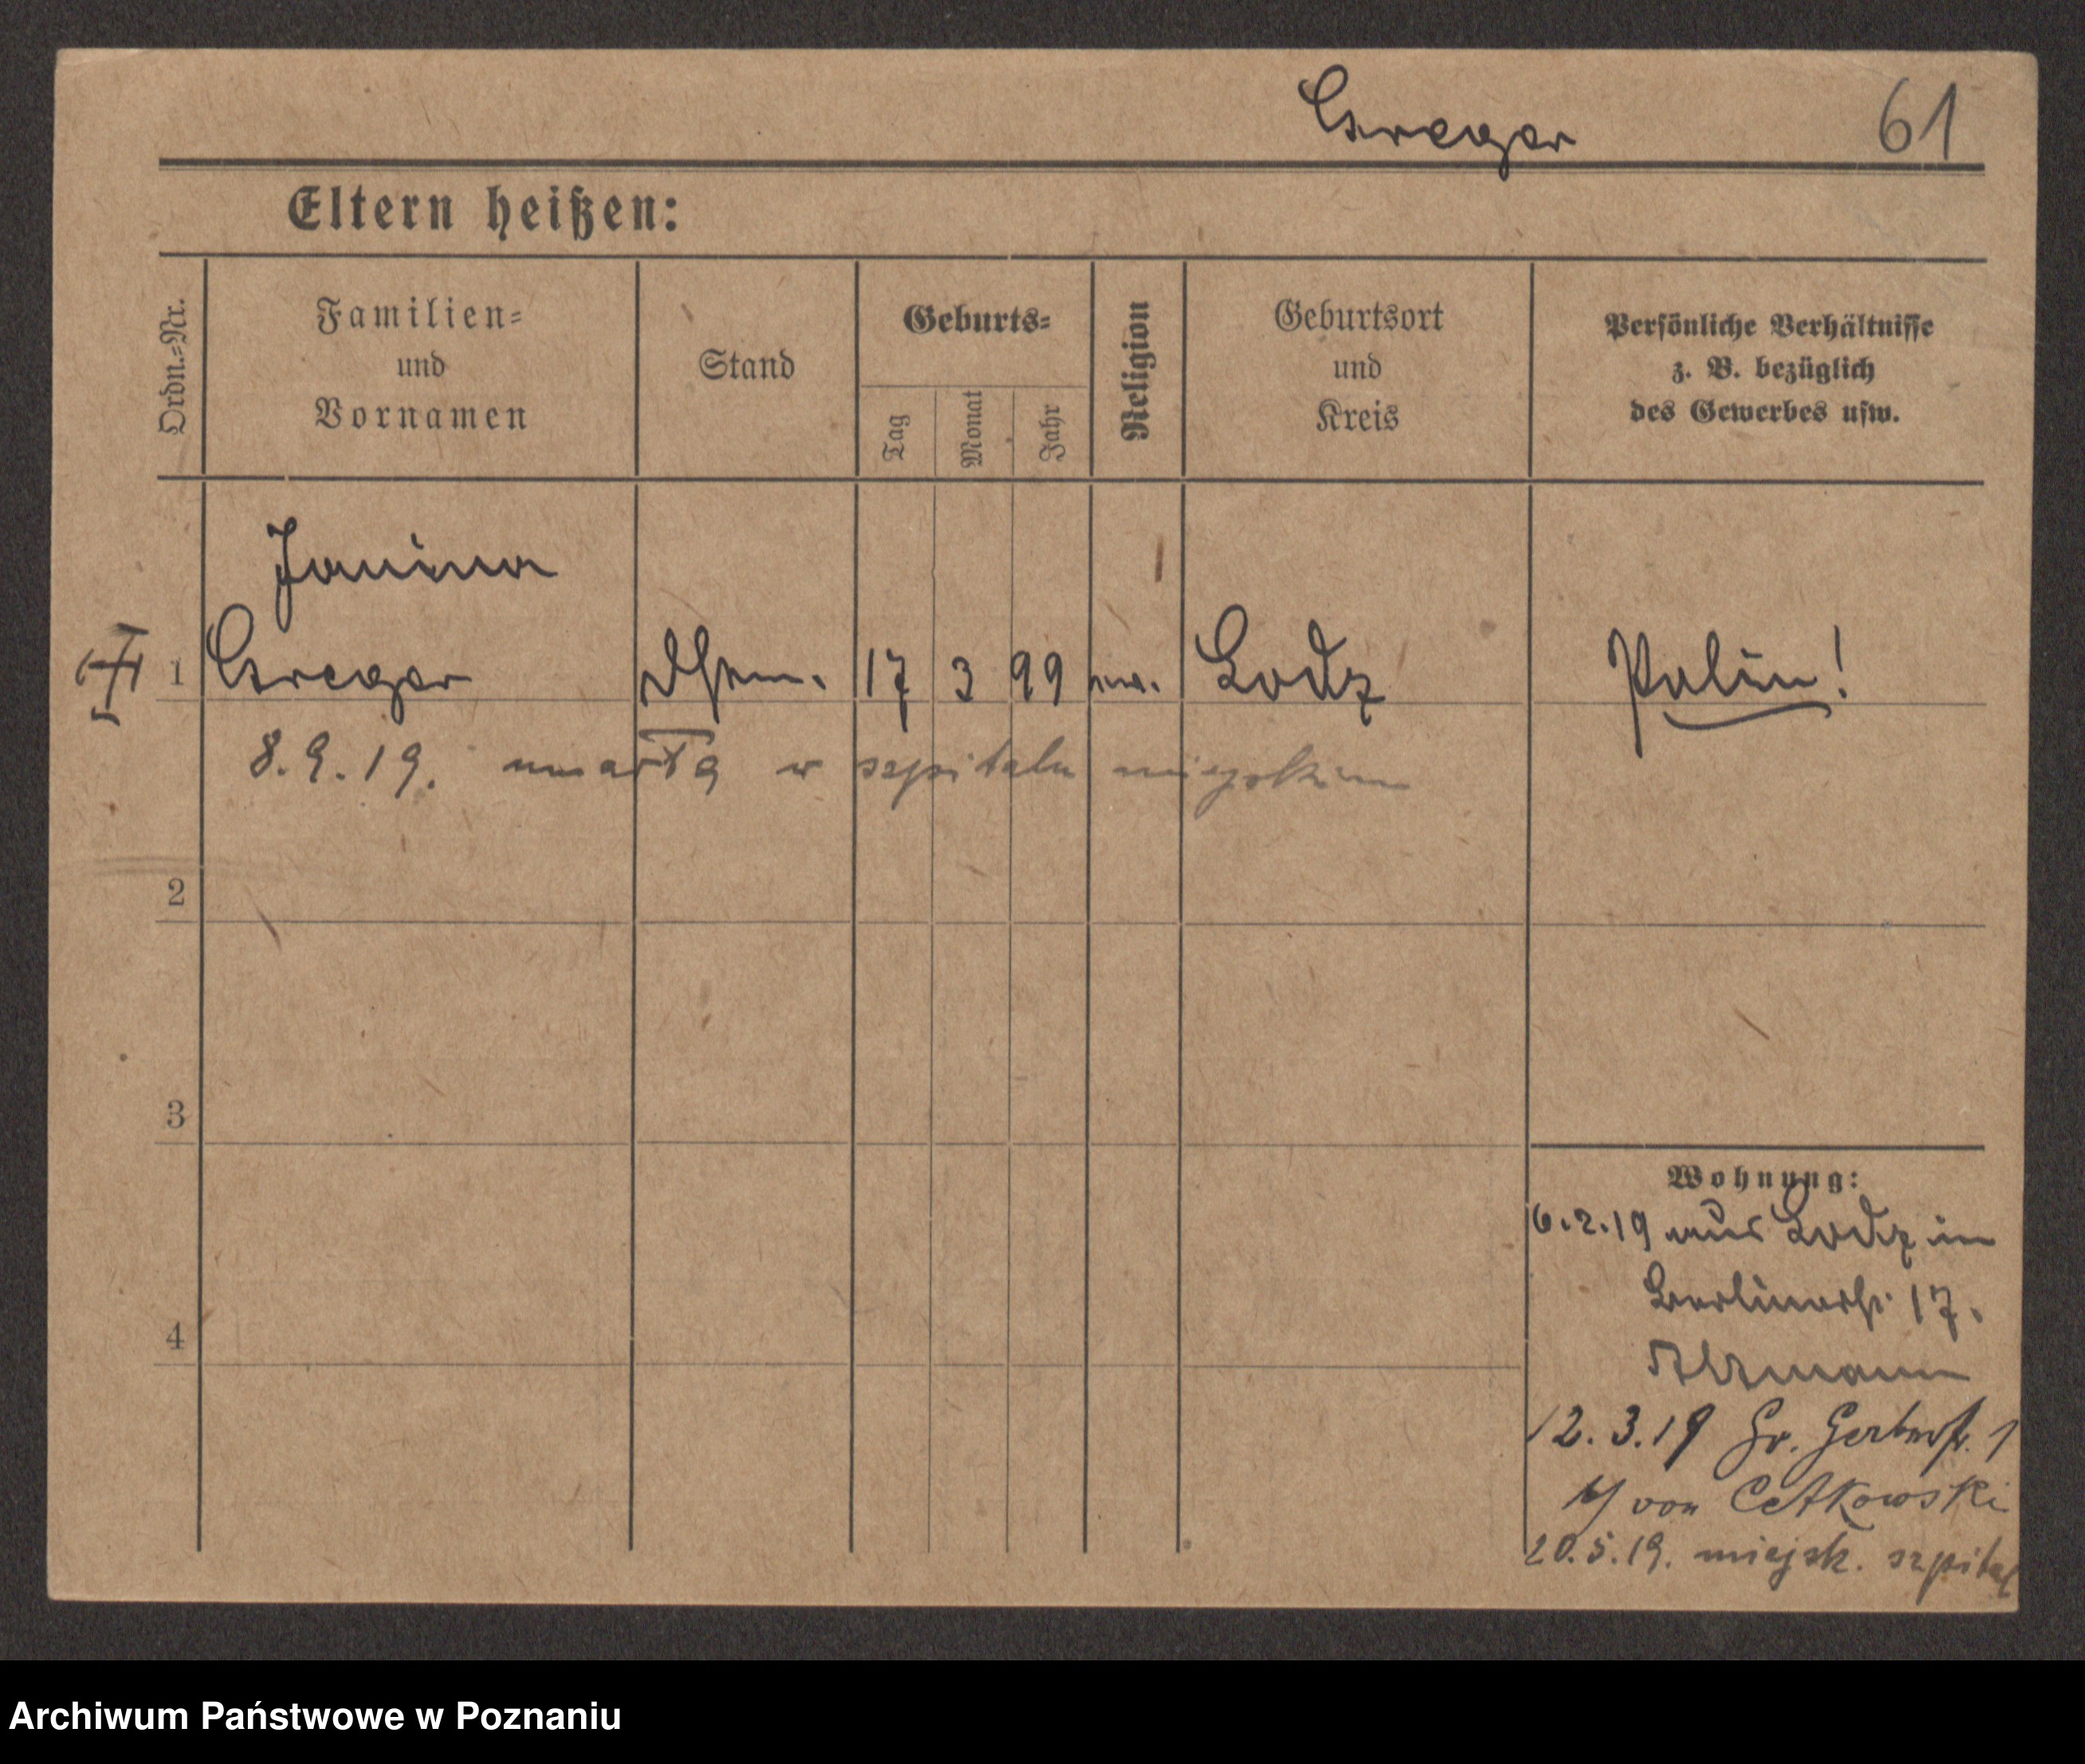 Greger 61
Eltern heißen:
Ordn.=Nr.
Familien=
und
Vornamen
Stand
Geburts=
Tag
Monat
Jahr
Religion
Geburtsort
und
Kreis
Persönliche Verhältnisse
z. B. bezüglich
des Gewerbes usw.
Janina
1 Greger 17 3 99 ev. Lodz Polin!
8.9.19. umarła w szpitalu miejskim
2
3
4
Wohnung:
16.2.19 aus Lodz in
Berlinerstr. 17.
12.3.19 Gr. Gerberstr. 1
von Cetkowski
20.5.19. miejsk. szpital
Archiwum Państwowe w Poznaniu